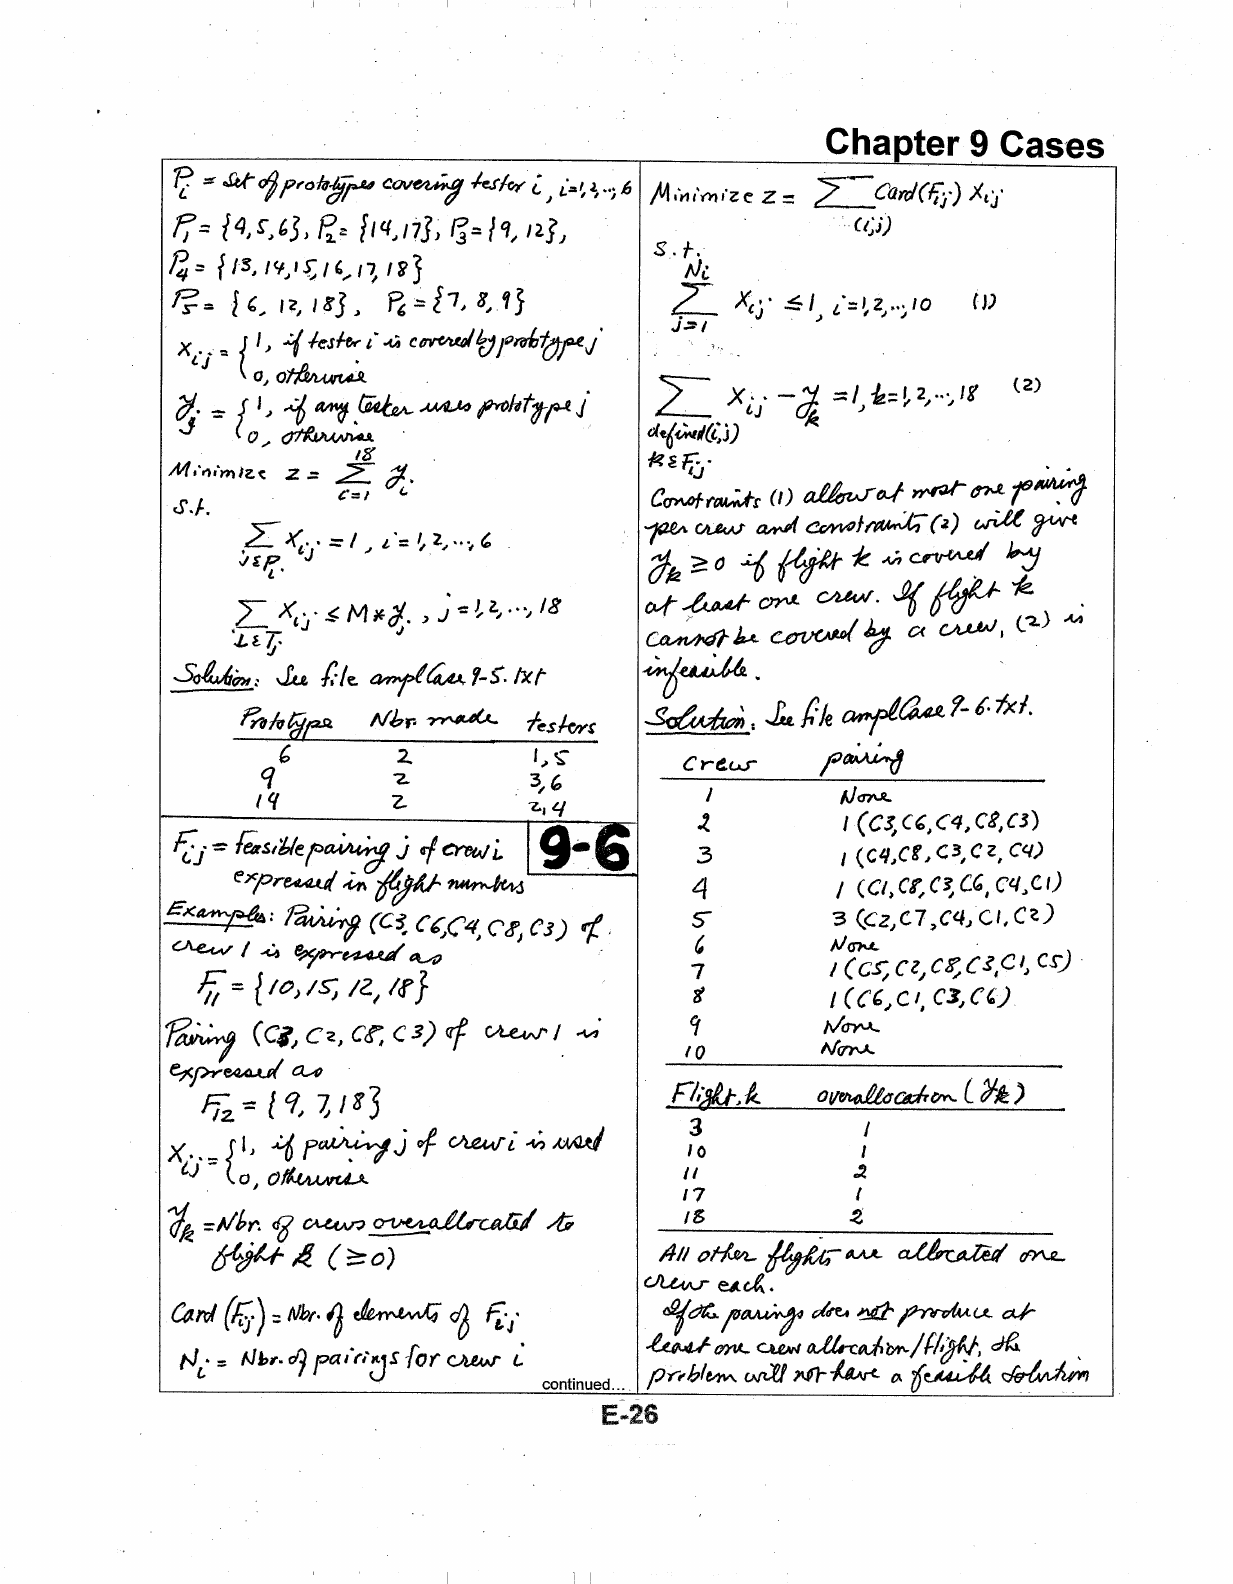 Chapter 9 Cases
P_i = Set of prototypes covering tester i, i=1,2,..,6
P_1 = {4,5,6}, P_2 = {14,17}, P_3 = {9,12},
P_4 = {13,14,15,16,17,18}
P_5 = {6,12,18}, P_6 = {7,8,9}
X_ij = { 1, if tester i is covered by prototype j
0, otherwise
y_j = { 1, if any tester uses prototype j
0, otherwise
Minimize z = Σ_{i=1}^{18} y_i
s.t.
Σ_{j∈P_i} X_ij = 1, i=1,2,...,6
Σ_{i∈T_j} X_ij ≤ M*y_j, j=1,2,...,18
Solution: See file amplCase9-5.txt
Prototype Nbr. made testers
6 2 1,5
9 2 3,6
14 2 2,4
9-6
F_ij = feasible pairing j of crew i
expressed in flight numbers
Examples: Pairing (C3, C6, C4, C8, C3) of
crew 1 is expressed as
F_11 = {10,15,12,18}
Pairing (C3, C2, C8, C3) of crew 1 is
expressed as
F_12 = {9,7,18}
X_ij = { 1, if pairing j of crew i is used
0, otherwise
y_k = Nbr. of crews overallocated to
flight k (≥0)
Card(F_ij) = Nbr. of elements of F_ij
N_i = Nbr. of pairings for crew i
continued...
Minimize z = Σ_{(i,j)} Card(F_ij) X_ij
s.t.
Σ_{j=1}^{N_i} X_ij ≤ 1, i=1,2,..,10 (1)
Σ_{defined(i,j) k∈F_ij} X_ij - y_k = 1, k=1,2,..,18 (2)
Constraints (1) allow at most one pairing
per crew and constraints (2) will give
y_k ≥ 0 if flight k is covered by
at least one crew. If flight k
cannot be covered by a crew, (2) is
infeasible.
Solution: See file amplCase9-6.txt.
Crew pairing
1 None
2 1 (C3,C6,C4,C8,C3)
3 1 (C4,C8,C3,C2,C4)
4 1 (C1,C8,C3,C6,C4,C1)
5 3 (C2,C7,C4,C1,C2)
6 None
7 1 (C5,C2,C8,C3,C1,C5)
8 1 (C6,C1,C3,C6)
9 None
10 None
Flight,k overallocation (y_k)
3 1
10 1
11 2
17 1
18 2
All other flights are allocated one
crew each.
If the parings does not produce at
least one crew allocation/flight, the
problem will not have a feasible solution
E-26